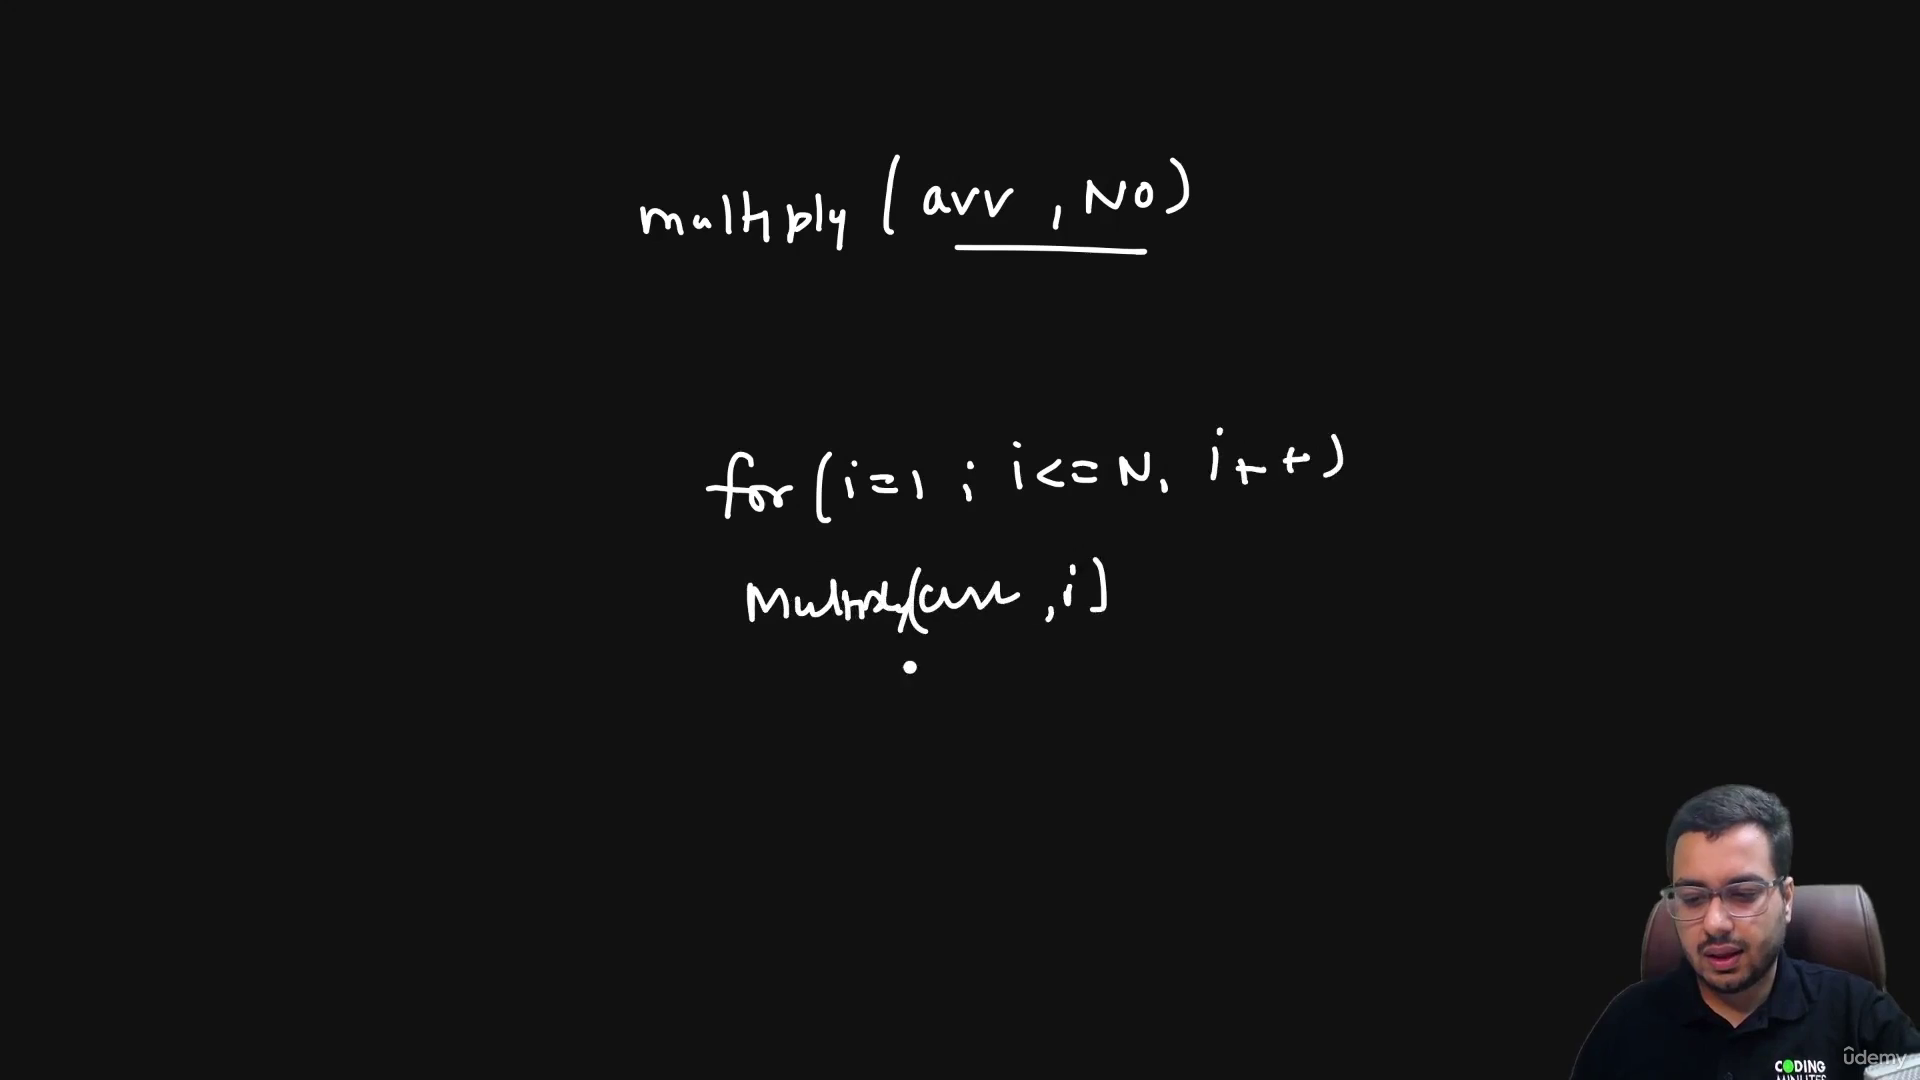 multiply (arr , No)
for (i=1 ; i<=N, i++)
Multiply(arr , i)
CODING
MINUTES
ûdemy